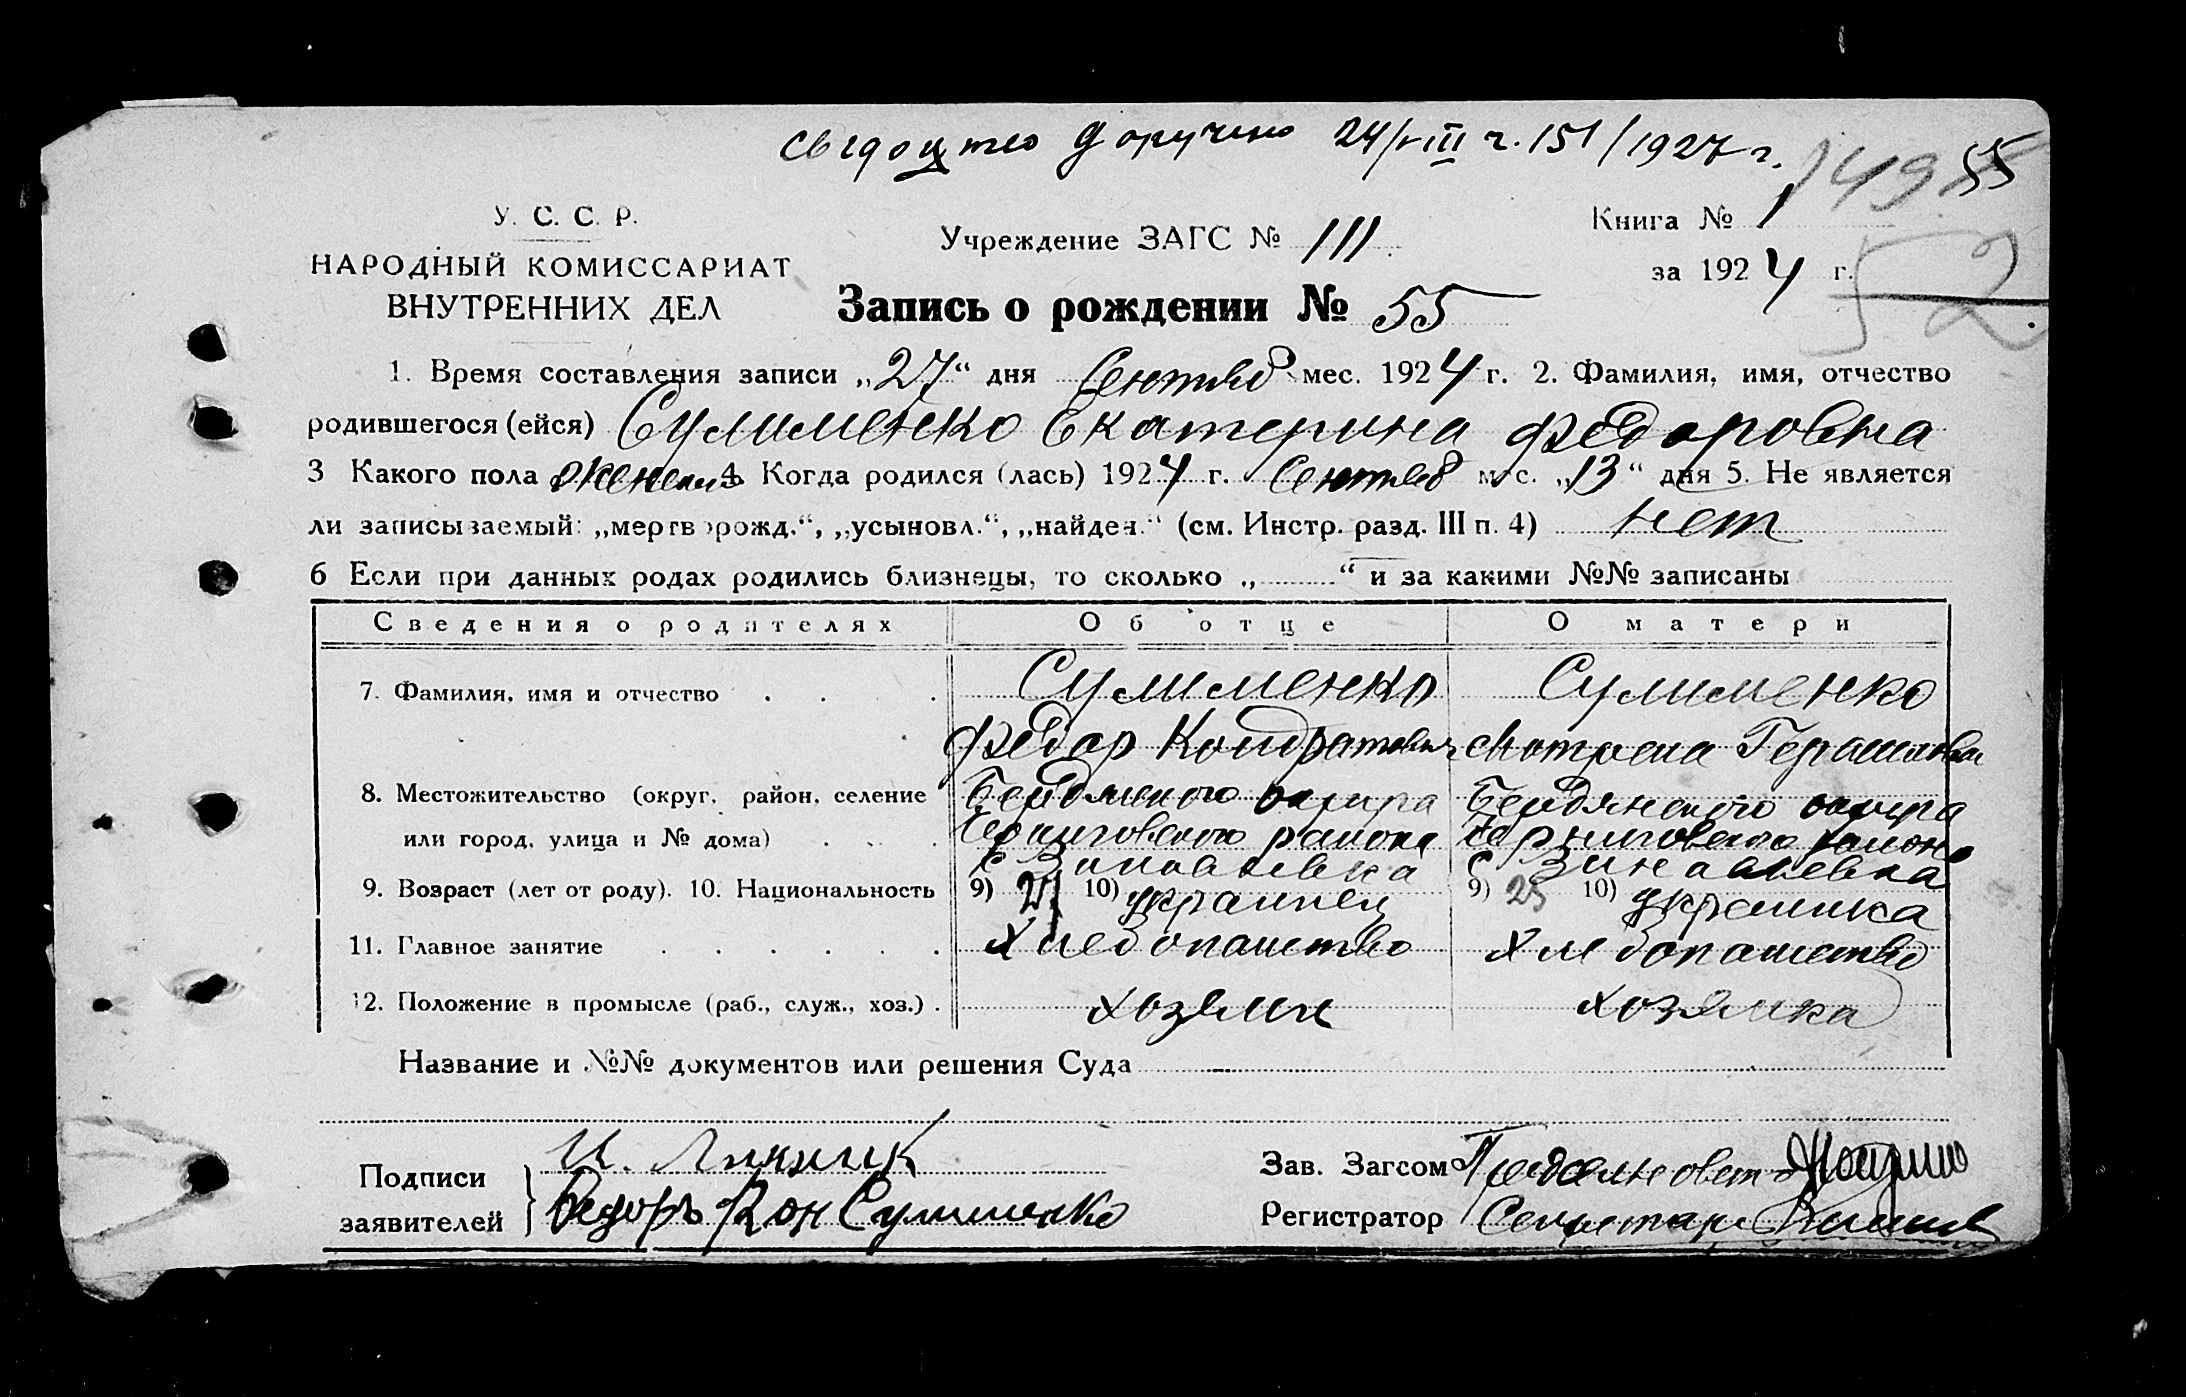 свідоцтво доручено 24/VIII ч. 151/1927 г.
149 55
52
У. С. С. Р.
НАРОДНЫЙ КОМИССАРИАТ
ВНУТРЕННИХ ДЕЛ
Учреждение ЗАГС № 111
Книга № 1
за 1924 г.
Запись о рождении № 55
1. Время составления записи „27“ дня Сентяб мес. 1924 г. 2. Фамилия, имя, отчество
родившегося (ейся) Сулименко Екатерина Федоровна
3 Какого пола женск 4. Когда родился (лась) 1924 г. Сентяб мес. „13“ дня 5. Не является
ли записываемый: „мертворожд.“, „усыновл.“, „найден.“ (см. Инстр. разд. III п. 4) нет
6 Если при данных родах родились близнецы, то сколько „ “ и за какими №№ записаны
Сведения о родителях Об отце О матери
7. Фамилия, имя и отчество Сулименко Сулименко
Федор Кондратович Мотрона Герасимовна
8. Местожительство (округ, район, селение Бердянского округа Бердянского округа
или город, улица и № дома) Черниговского района Черниговского района
с Зиновьевка с Зиновьевка
9. Возраст (лет от роду). 10. Национальность 9) 27 10) украинец 9) 25 10) украинка
11. Главное занятие Хлебопашество Хлебопашество
12. Положение в промысле (раб., служ., хоз.) хозяин хозяйка
Название и №№ документов или решения Суда
Подписи заявителей И.
Федоръ Кон Сулименко
Зав. Загсом Предсельсовета
Регистратор Секретарь